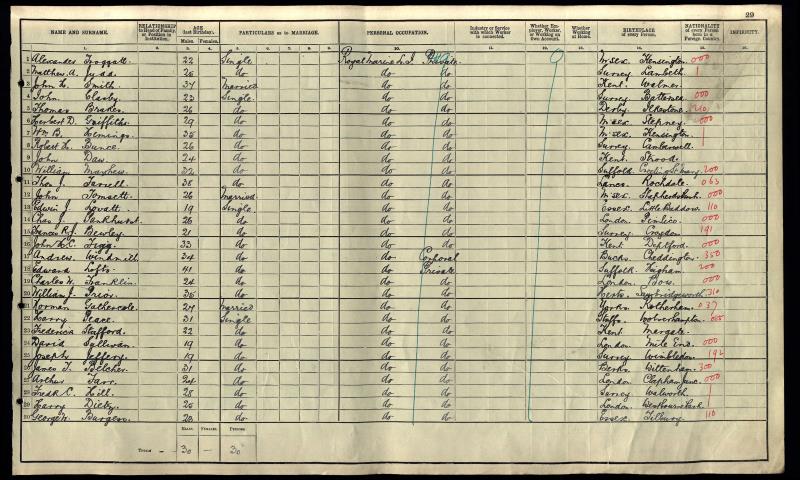 29
NAME AND SURNAME. RELATIONSHIP to Head of Family, or Position in Institution. AGE (last Birthday). PARTICULARS as to MARRIAGE. PERSONAL OCCUPATION. Industry or Service with which Worker is connected. Whether Employer, Worker, or Working on Own Account. Whether Working at Home. BIRTHPLACE of every Person. NATIONALITY of every Person born in a Foreign Country. INFIRMITY.
Males. Females.
1 Alexander Froggatt 22 Single Royal Marine L.I. Private M'sex Kensington 000
2 Matthew A. Judd 25 do do do Surrey Lambeth
3 John L. Smith 37 Married do do Kent Walmer
4 John Clasby 23 Single do do Surrey Battersea 000
5 Thomas Brakes 26 do do do Derby Ilkeston
6 Herbert D. Griffiths 29 do do do M'sex Stepney 000
7 Wm B. Hemings 35 do do do M'sex Kensington
8 Robert H. Bunce 26 do do do Surrey Camberwell
9 John Daw 24 do do do Kent Strood
10 William Mayhew 32 do do do Suffolk 200
11 Thos J. Farrell 38 do do do Lancs Rochdale 063
12 John Tomsett 26 Married do do M'sex Shepherds Bush 000
13 Edwin J. Lovatt 19 Single do do Essex Little Baddow 110
14 Chas J. Pankhurst 25 do do do London Pimlico 000
15 Francis R.J. Bewley 21 do do do Surrey Croydon 191
16 John H.C. Figg 33 do do do Kent Deptford 000
17 Andrew Windmith 34 do do Corporal Bucks Cheddington 350
18 Edward Lofts 41 do do Private Suffolk Higham 200
19 Charles W. Franklin 24 do do do London Bow 000
20 William J. Prior 35 do do do Herts Sawbridgeworth 310
21 Norman Gathercole 27 Married do do Yorks Rotherham 037
22 Harry Peace 31 Single do do Staffs Wolverhampton
23 Frederick Stafford 22 do do do Kent Margate
24 David Sullivan 19 do do do London Mile End 000
25 Joseph Jeffery 19 do do do Surrey Wimbledon 192
26 James T. Belcher 31 do do do Berks Wittenham 300
27 Arthur Farr 24 do do do London Clapham Junc. 000
28 Fredk C. Hill 28 do do do Surrey Walworth
29 Harry Dieby 25 do do do London Westbourne Park
30 George W. Burgess 20 do do do Essex Tilbury 110
Males. Females. Persons
Totals 30 — 30